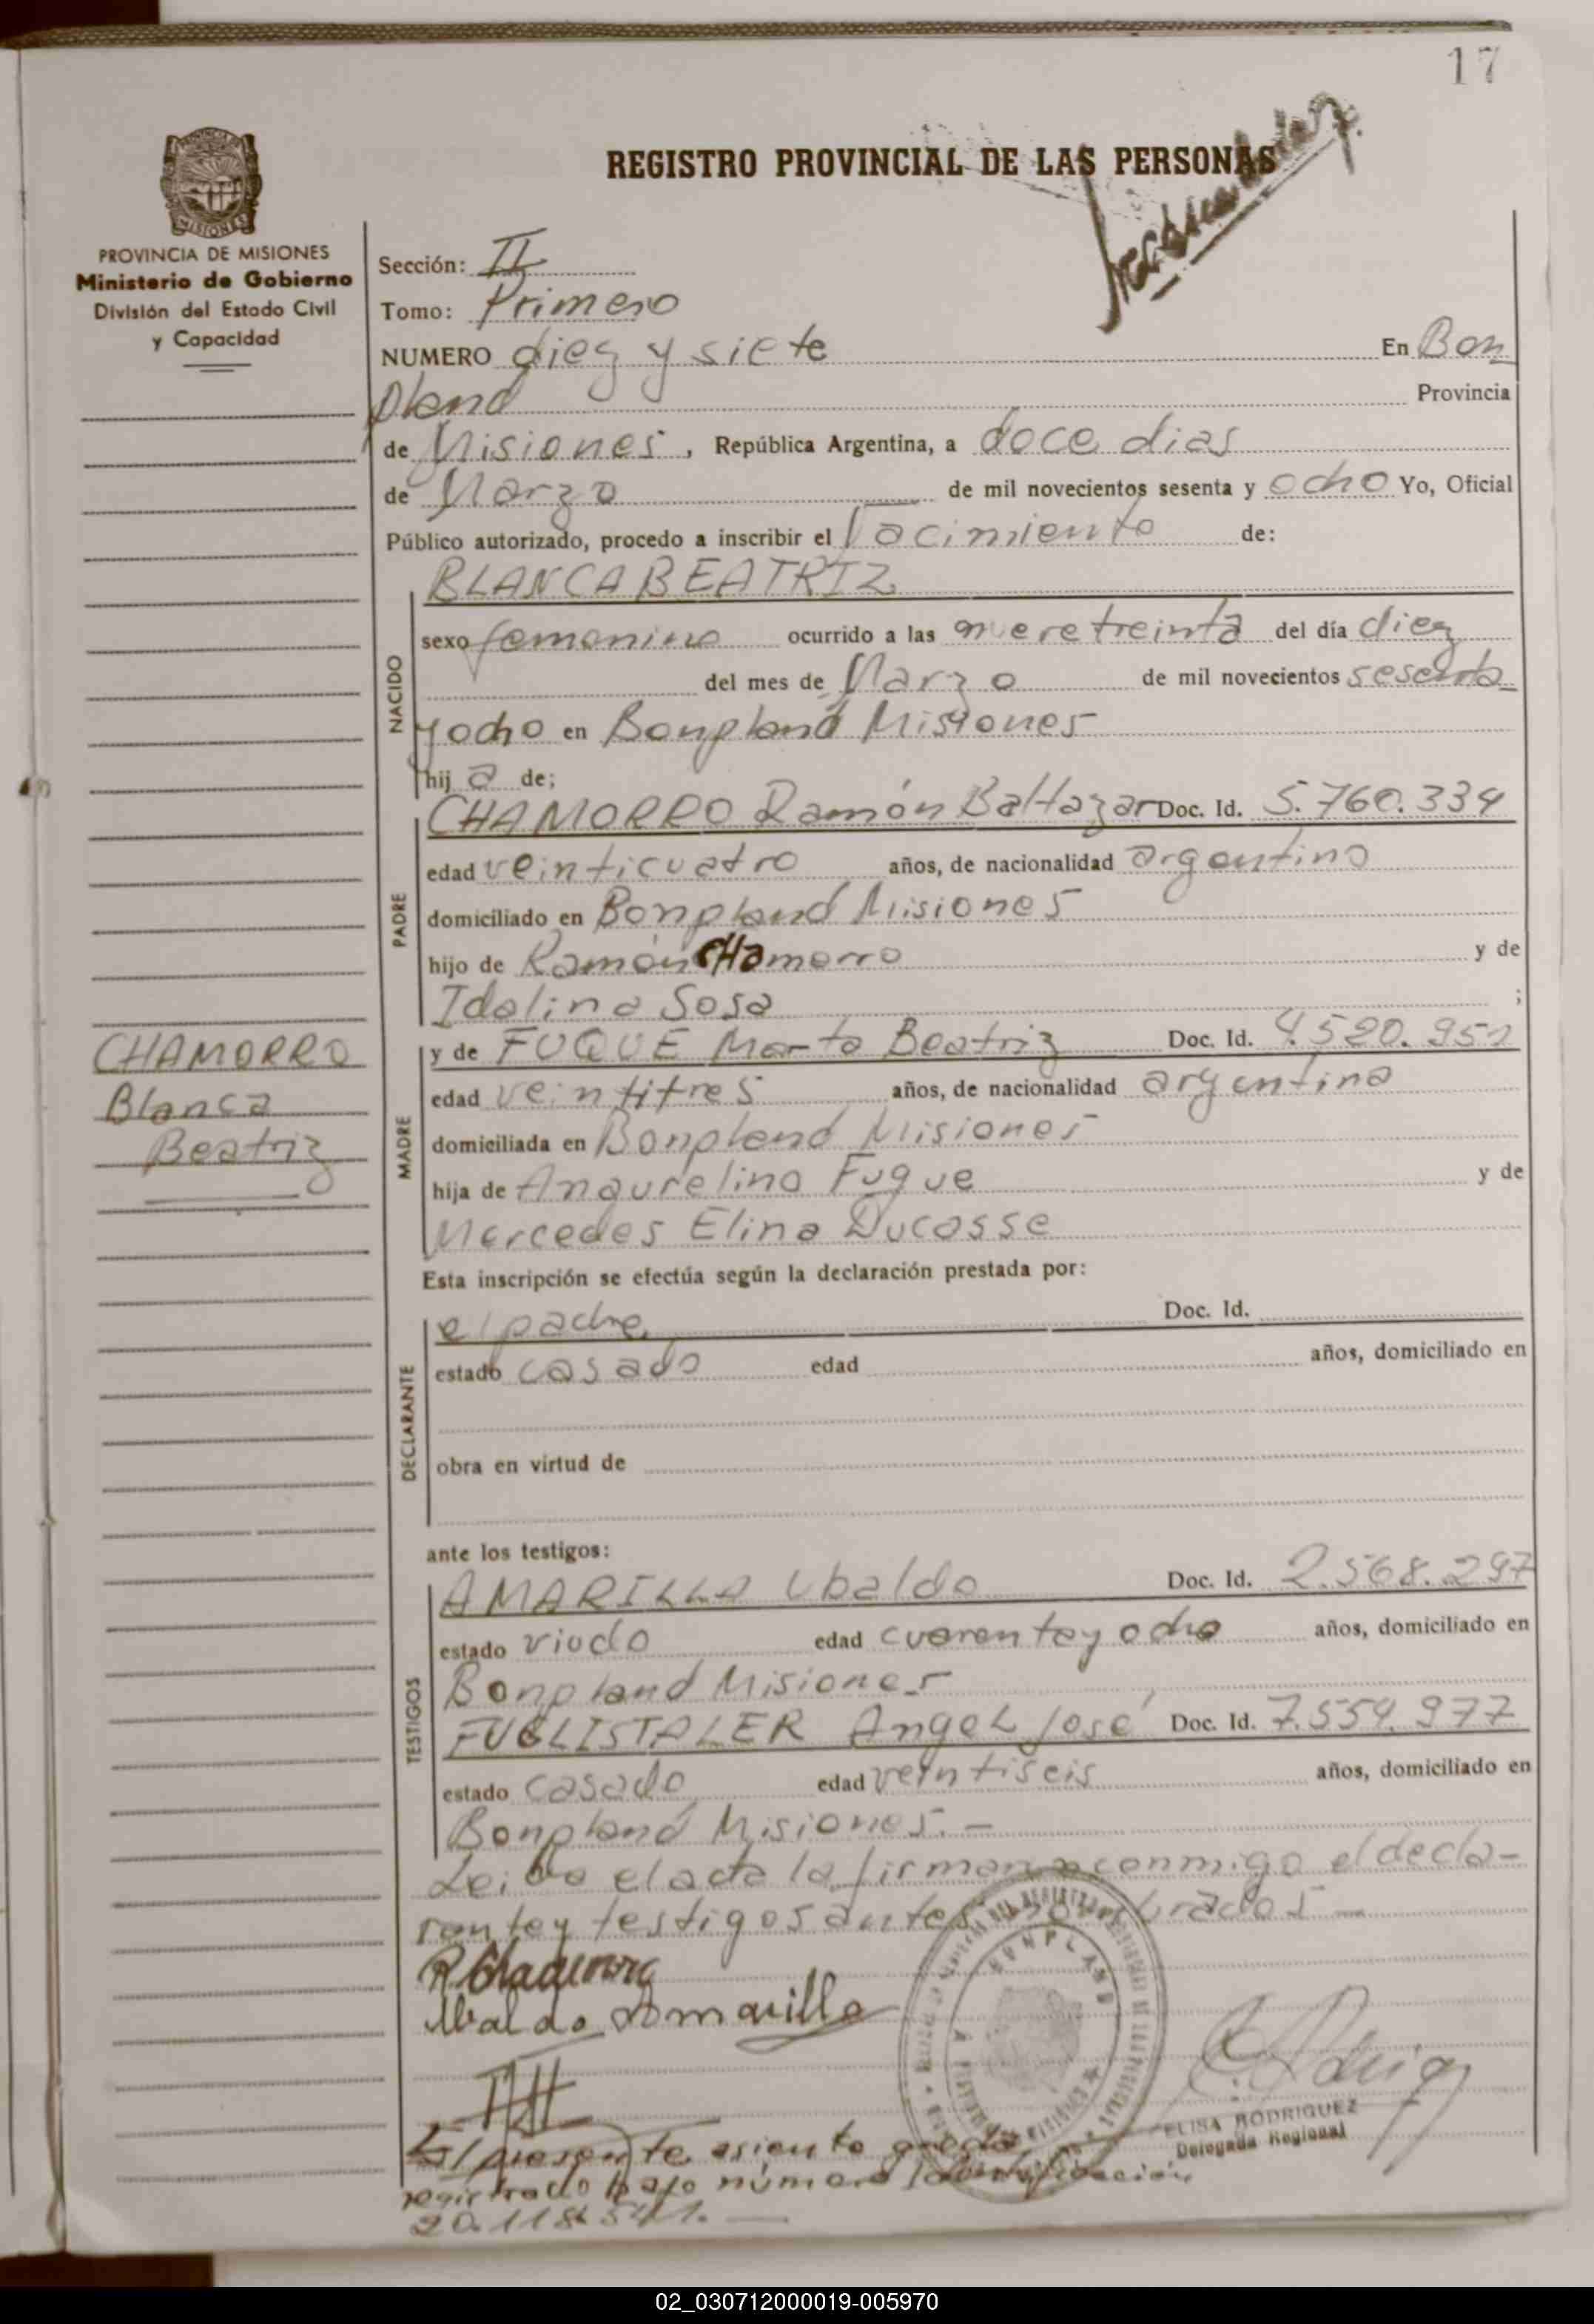 17
REGISTRO PROVINCIAL DE LAS PERSONAS
PROVINCIA DE MISIONES
Ministerio de Gobierno
División del Estado Civil
y Capacidad
Sección: II
Tomo: Primero
NUMERO diez y siete En Bon
pland Provincia
de Misiones, República Argentina, a doce dias
de Marzo de mil novecientos sesenta y ocho Yo, Oficial
Público autorizado, procedo a inscribir el Nacimiento de:
NACIDO
BLANCA BEATRIZ
sexo femenino ocurrido a las treinta del día diez
del mes de Marzo de mil novecientos sesenta
y ocho en Bonpland Misiones
hij a de;
PADRE
CHAMORRO Ramón Baltazar Doc. Id. 5.760.334
edad veinticuatro años, de nacionalidad argentino
domiciliado en Bonpland Misiones
hijo de Ramón CHamorro y de
Idalina Sosa ;
CHAMORRO
Blanca
Beatriz
MADRE
y de FUQUE Marta Beatriz Doc. Id. 4.520.951
edad veintitres años, de nacionalidad argentina
domiciliada en Bonpland Misiones
hija de Angurelino Fuque y de
Mercedes Elina Ducasse
Esta inscripción se efectúa según la declaración prestada por:
DECLARANTE
el padre Doc. Id.
estado casado edad años, domiciliado en
obra en virtud de
ante los testigos:
TESTIGOS
AMARILLA Ubaldo Doc. Id. 2.568.297
estado viudo edad cuarenta y ocho años, domiciliado en
Bonpland Misiones
FUGLISTALER Angel José Doc. Id. 7.554.977
estado casado edad veintiseis años, domiciliado en
Bonpland Misiones.-
Leida el acta la firman conmigo el decla-
rante y testigos antes nombrados-
Ubaldo Amarilla
BONPLAND
ELISA RODRIGUEZ
Delegada Regional
El presente asiento queda
registrado bajo número identificación
20.118.541.-
02_030712000019-005970